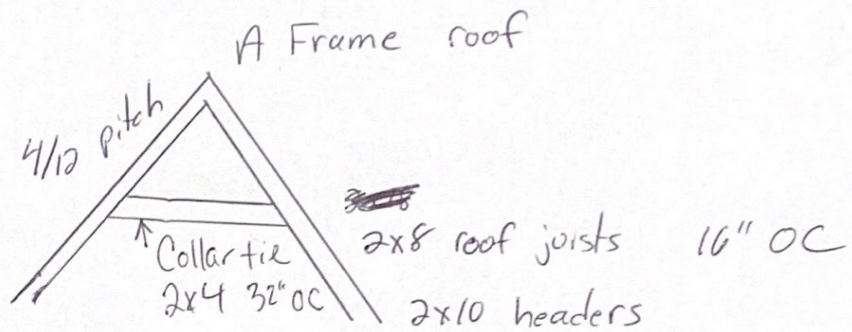 A Frame roof
4/12 pitch
Collar tie
2x4 32" OC
2x8 roof joists 16" OC
2x10 headers